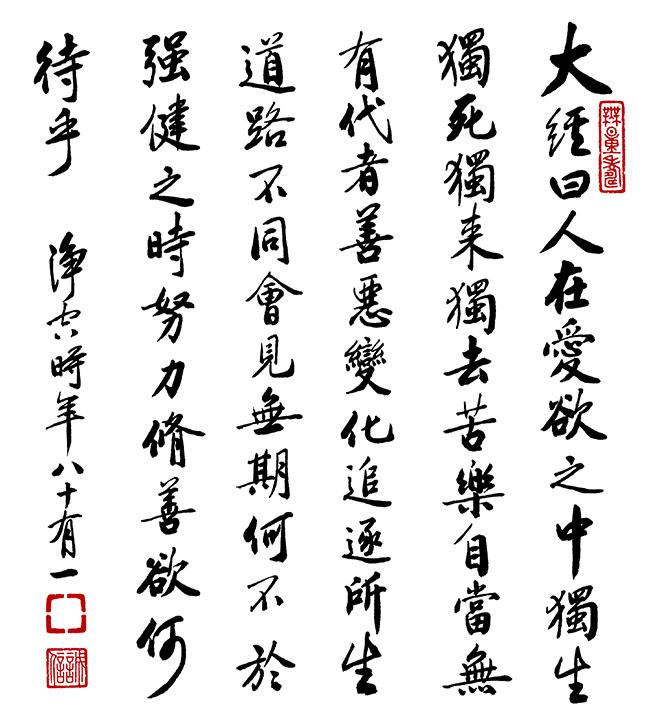 大經曰人在愛欲之中獨生
無量壽
獨死獨来獨去苦樂自當無
有代者善惡變化追逐所生
道路不同會見無期何不於
强健之時努力脩善欲何
待乎
淨空時年八十有一
誠信